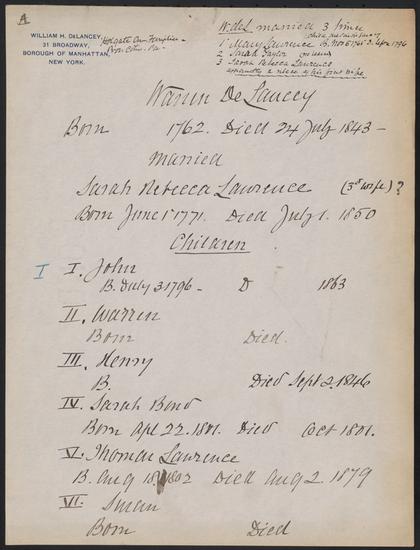 A
WILLIAM H. DeLANCEY,
31 BROADWAY,
BOROUGH OF MANHATTAN,
NEW YORK.
Holgate Am. Families -
W. deL married 3 times
1 Mary Lawrence B. Nov 6 1765 D. Sept 1796
2 Sarah Taylor (no issue)
3 Sarah Rebecca Lawrence
apparently a niece of his first wife
Warren De Lancey
Born 1762. Died 24 July 1843 -
married
Sarah Rebecca Lawrence (3rd wife) ?
Born June 1st 1771. Died July 1. 1850
Children
I I. John
B. July 3 1796 - D 1863
II. Warren
Born Died.
III. Henry
B. Died Sept 2. 1846
IV. Sarah Bond
Born Apl 22. 1801. Died Oct 1801.
V. Thomas Lawrence
B. Aug 18 1802 Died Aug 2. 1879
VI. Susan
Born Died